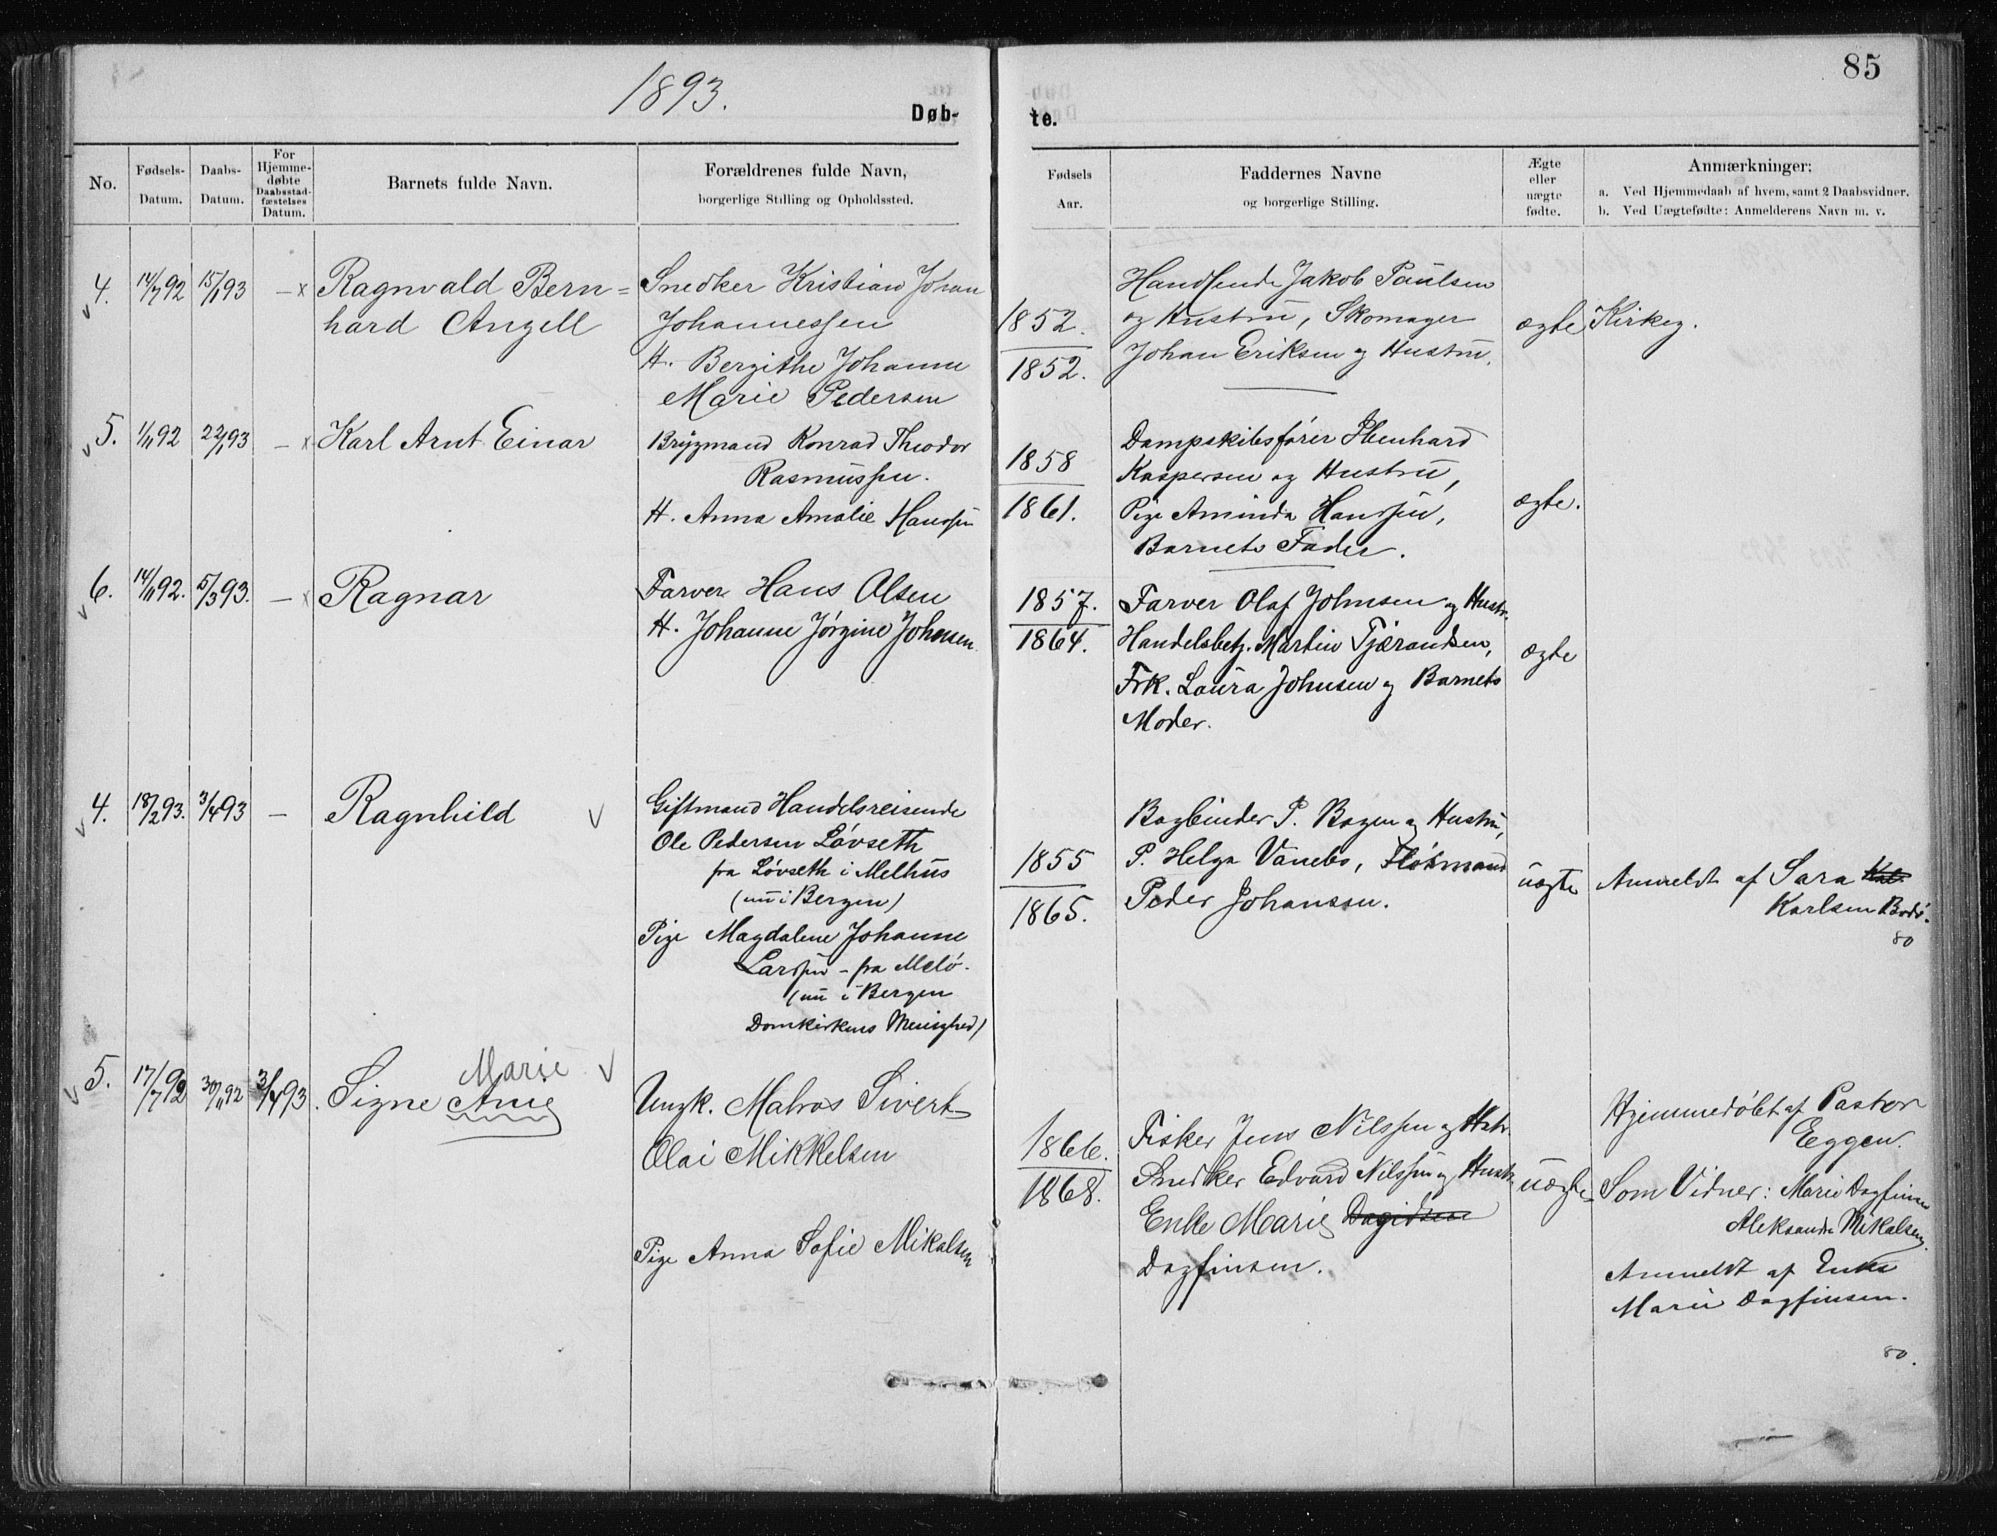 1893.
85
Døb-
te.
No.
Fødsels-
Datum.
Daabs-
Datum.
For
Hjemme-
døbte
Daabsstad-
fæstelses
Datum.
Barnets fulde Navn.
Forældrenes fulde Navn,
borgerlige Stilling og Opholdssted.
Fødsels
Aar.
Faddernes Navne
og borgerlige Stilling.
Ægte
eller
uægte
fødte.
Anmærkninger:
a. Ved Hjemmedaab af hvem, samt 2 Daabsvidner.
b. Ved Uægtefødte: Anmelderens Navn m. v.
4. 14/7 92 15/1 93 — x Ragnvald Bern=
hard Angell
Snedker Kristian Johan
Johannessen
H. Bergithe Johanne
Marie Pedersen
1852.
1852.
Handlende Jakob Paulsen
og Hustru, Skomager
Johan Eriksen og Hustru.
ægte
Kirkeg.
5. 1/11 92 22/1 93 — x Karl Arnt Einar
Brygmand Konrad Theodor
Rasmussen.
H. Anna Amalie Hanssen
1858
1861.
Dampskibsfører Ebenhard
Kaspersen og Hustru,
Pige Aminda Hanssen,
Barnets Fader.
ægte.
6. 14/11 92. 5/3 93. — x Ragnar
Farver Hans Olsen
H. Johanne Jørgine Johnsen
1857.
1864.
Farver Olaf Johnsen og Hustr.
Handelsbetj. Martin Tjærandsen,
Frk. Laura Johnsen og Barnets
Moder.
ægte
4. 18/2 93. 3/4 93 — Ragnhild
Giftmand Handelsreisende
Ole Pedersen Løvseth
fra Løvseth i Melhus
(nu i Bergen)
Pige Magdalene Johanne
Larssen - fra Melø.
(nu i Bergen
Domkirkens Menighed)
1855
1865.
Bogbinder P. Bogen og Hustru,
P. Helga Vanebo, Fløtmand
Peder Johansen.
uægte
Anmeldt af Sara Kal
Karlsen Bodø.
80
5. 17/7 92 30/11 92 3/4 93. Signe Ane
Marie
Ungk. Malvos Sivert
Olai Mikkelsen
Pige Anna Sofie Mikalsen
1866.
1868.
Fisker Jens Nilssen og Hstr.
Snedker Edvard Nilssen og Hustr.
Enke Marie Dagidsen
Dagfinsen.
uægte
Hjemmedøbt af Pastor
Eggen.
Som Vidner: Marie Dagfinsen
Aleksandra Mikalsen.
Anmeldt af Enke
Marie Dagfinsen.
80.